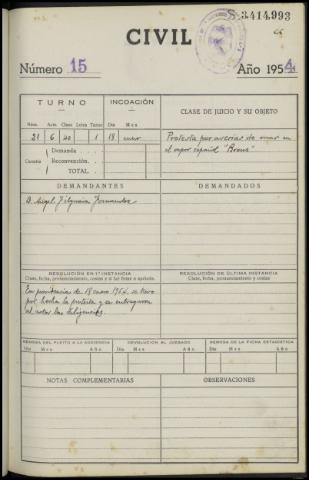 S.3414.993
CIVIL
Número 15
Año 1954
TURNO
INCOACIÓN
CLASE DE JUICIO Y SU OBJETO
Núm. Acts. Clase Letra Turno
Día Mes
21 6 20 1 18 enero
Protesta por averías de mar en
el vapor español "
Cuantía
Demanda
Reconvención
TOTAL
DEMANDANTES
DEMANDADOS
D. Angel Filgueira Fernandez
RESOLUCIÓN EN 1ª INSTANCIA
Clase, fecha, pronunciamiento, costas y si fué firme o apelada.
RESOLUCIÓN DE ÚLTIMA INSTANCIA
Clase, fecha, pronunciamiento y costas
En providencia de 18 enero 1954, se tuvo
por hecha la protesta y se entregaron
al actor las diligencias.
REMESA DEL PLEITO A LA AUDIENCIA
DEVOLUCIÓN AL JUZGADO
REMESA DE LA FICHA ESTADÍSTICA
Día Mes Año
Día Mes Año
Día Mes Año
NOTAS COMPLEMENTARIAS
OBSERVACIONES